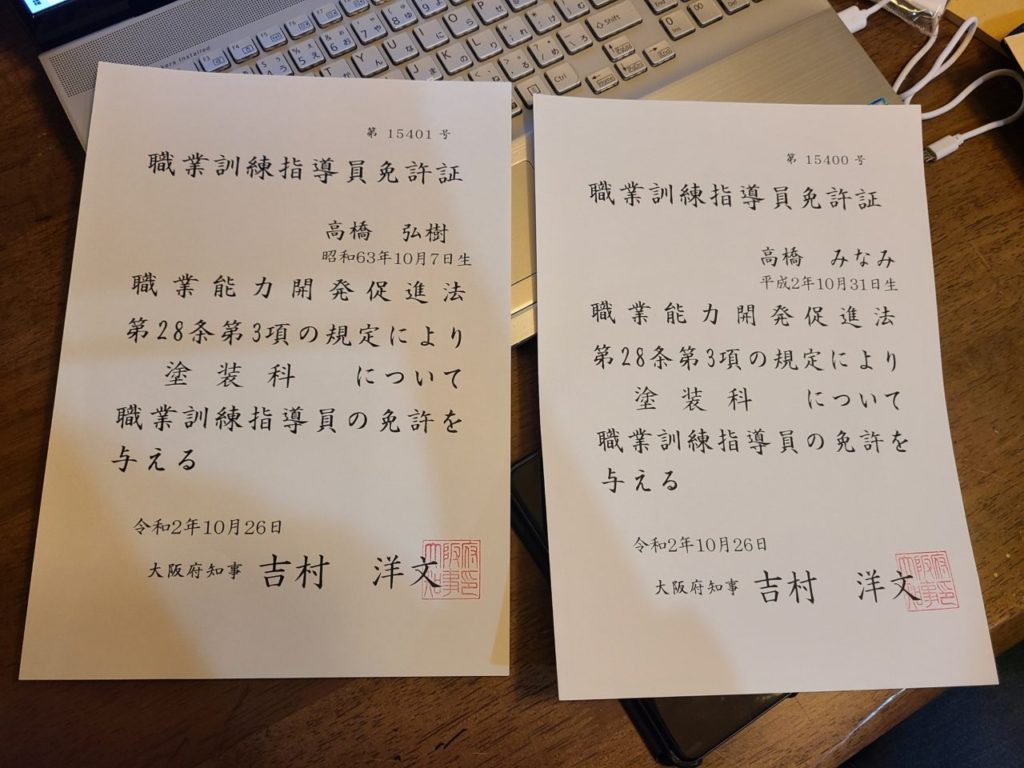 第 15401 号
職業訓練指導員免許証
高橋 弘樹
昭和63年10月7日生
職業能力開発促進法
第28条第3項の規定により
塗装科 について
職業訓練指導員の免許を
与える
令和2年10月26日
大阪府知事 吉村 洋文
第 15400 号
職業訓練指導員免許証
高橋 みなみ
平成2年10月31日生
職業能力開発促進法
第28条第3項の規定により
塗装科 について
職業訓練指導員の免許を
与える
令和2年10月26日
大阪府知事 吉村 洋文